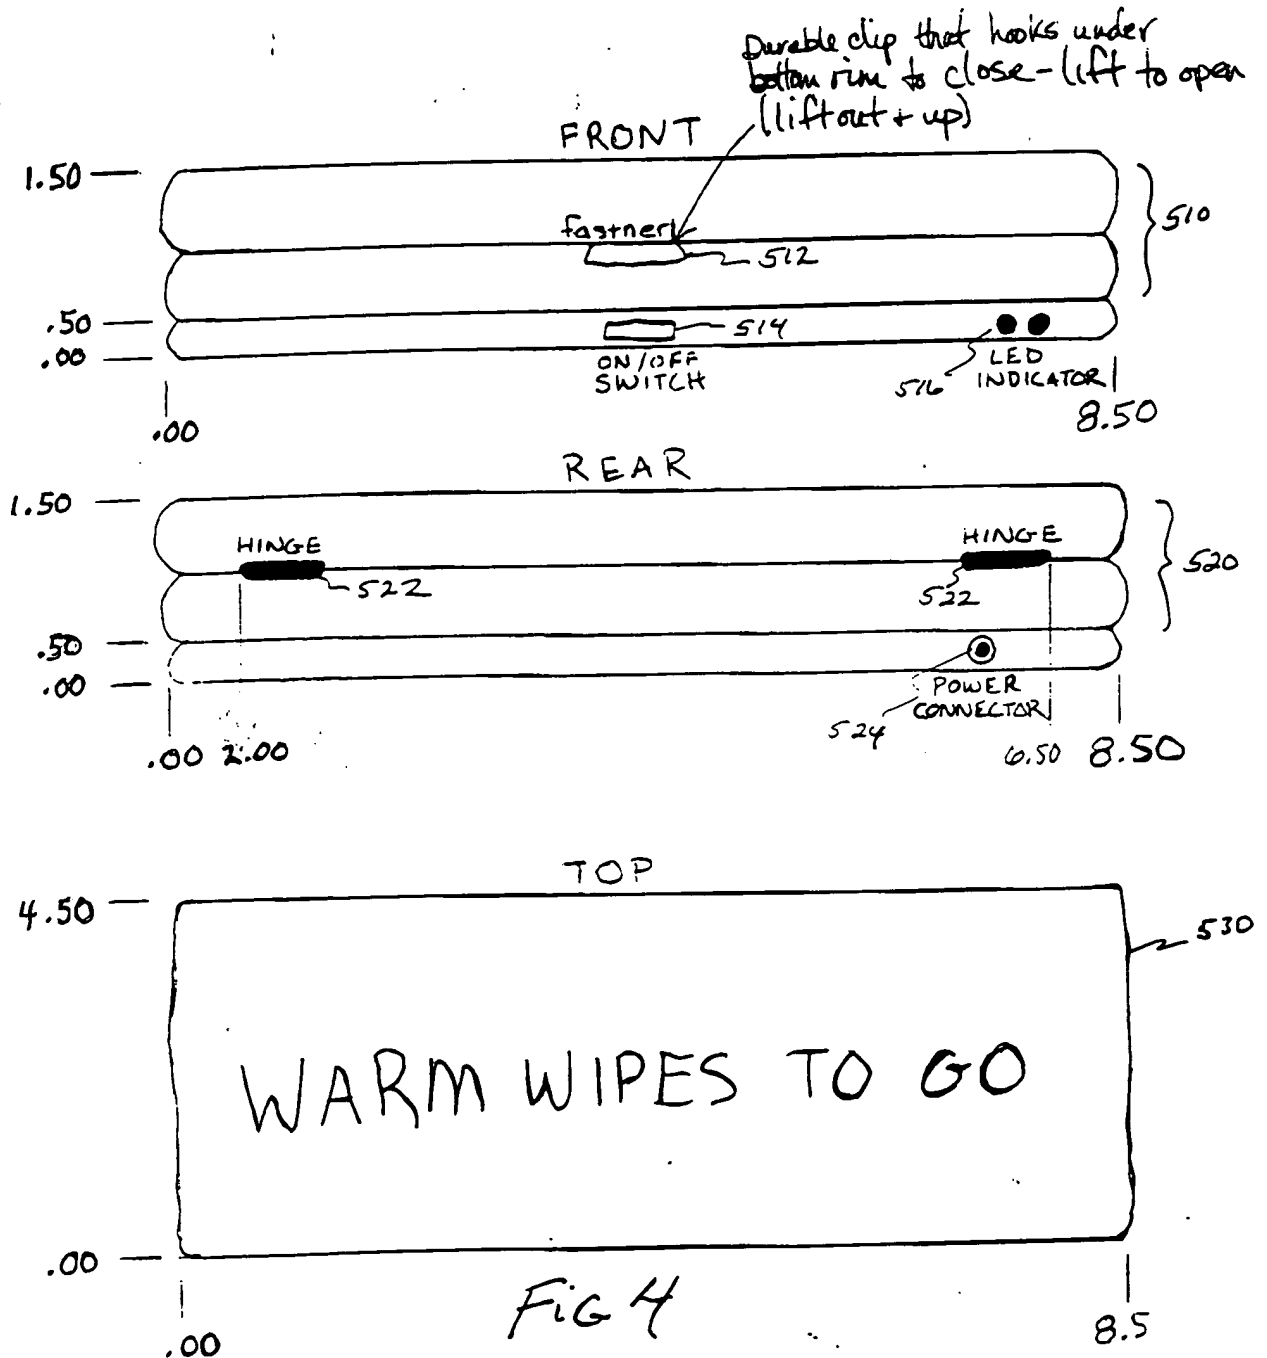 Durable clip that hooks under
bottom rim to close - lift to open
(lift out + up)
FRONT
1.50
510
fastner
512
.50
514
.00
ON/OFF
SWITCH
516
LED
INDICATOR
.00
8.50
REAR
1.50
HINGE
HINGE
520
522
522
.50
.00
POWER
CONNECTOR
524
.00
2.00
6.50
8.50
TOP
4.50
530
WARM WIPES TO GO
.00
FiG 4
.00
8.5